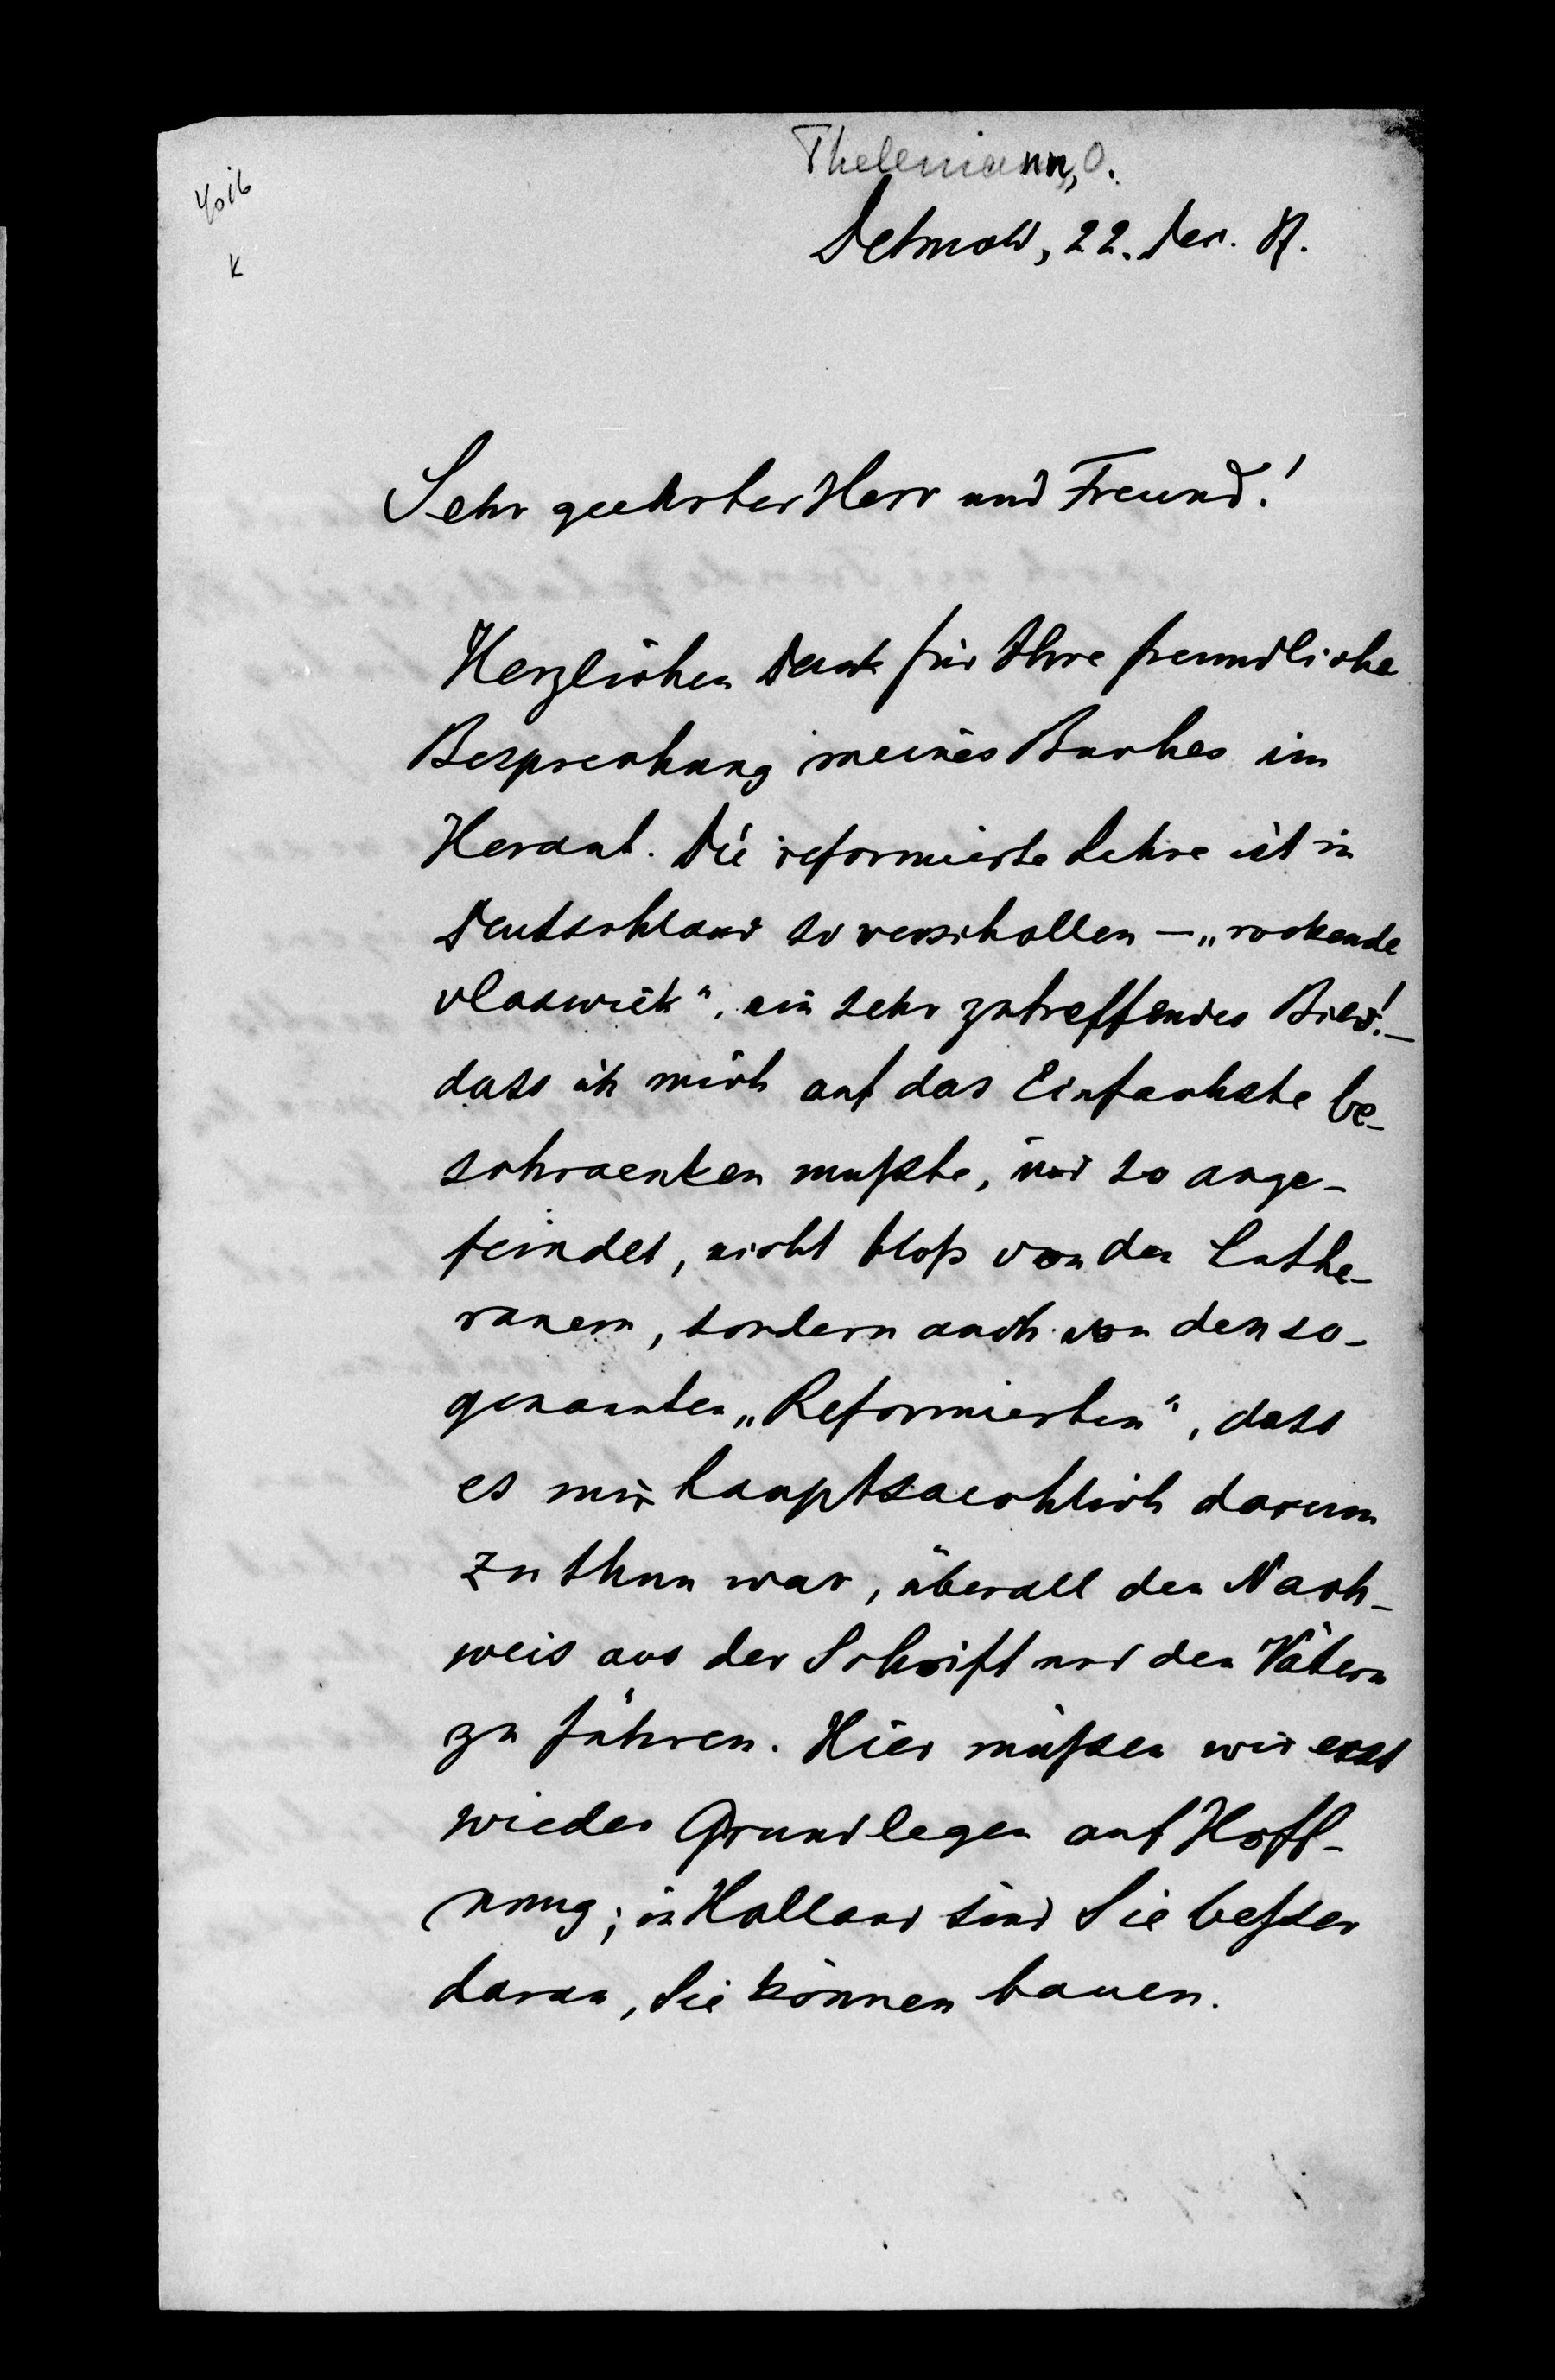 Thelemann, O.
4016
K
Detmold, 22. Dec. 87.
Sehr geehrter Herr und Freund!
Herzlichen Dank für Ihre freundliche
Besprechung meines Buches im
Heraut. Die reformierte Lehre ist in
Deutschland so verschollen – „rookende
vlaswiek“, ein sehr zutreffendes Bild! –
dass ich mich auf das Einfachste be-
schraenken mußte, und so ange-
feindet, nicht bloß von den Luthe-
ranern, sondern auch von den so-
genannten „Reformierten“, dass
es mir hauptsaechlich darum
zu thun war, überall den Nach-
weis aus der Schrift und den Vätern
zu führen. Hier müßen wir erst
wieder Grund legen auf Hoff-
nung; in Holland sind Sie beßer
daran, Sie können bauen.